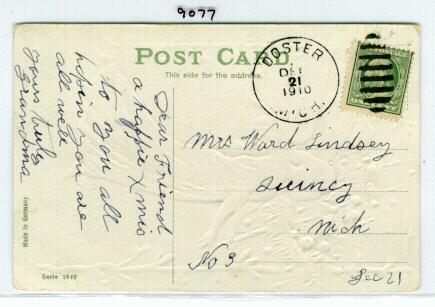 9077
POST CARD.
This side for the address.
DOSTER
DEC
21
1910
MICH.
Dear Friend
a happie Xmis
to you all
hopin you are
all well
yours truly
Grandma
Mrs Ward Lindsey
Quincy
Mich
No 3
Dec 21
Made in Germany.
Serie 1649